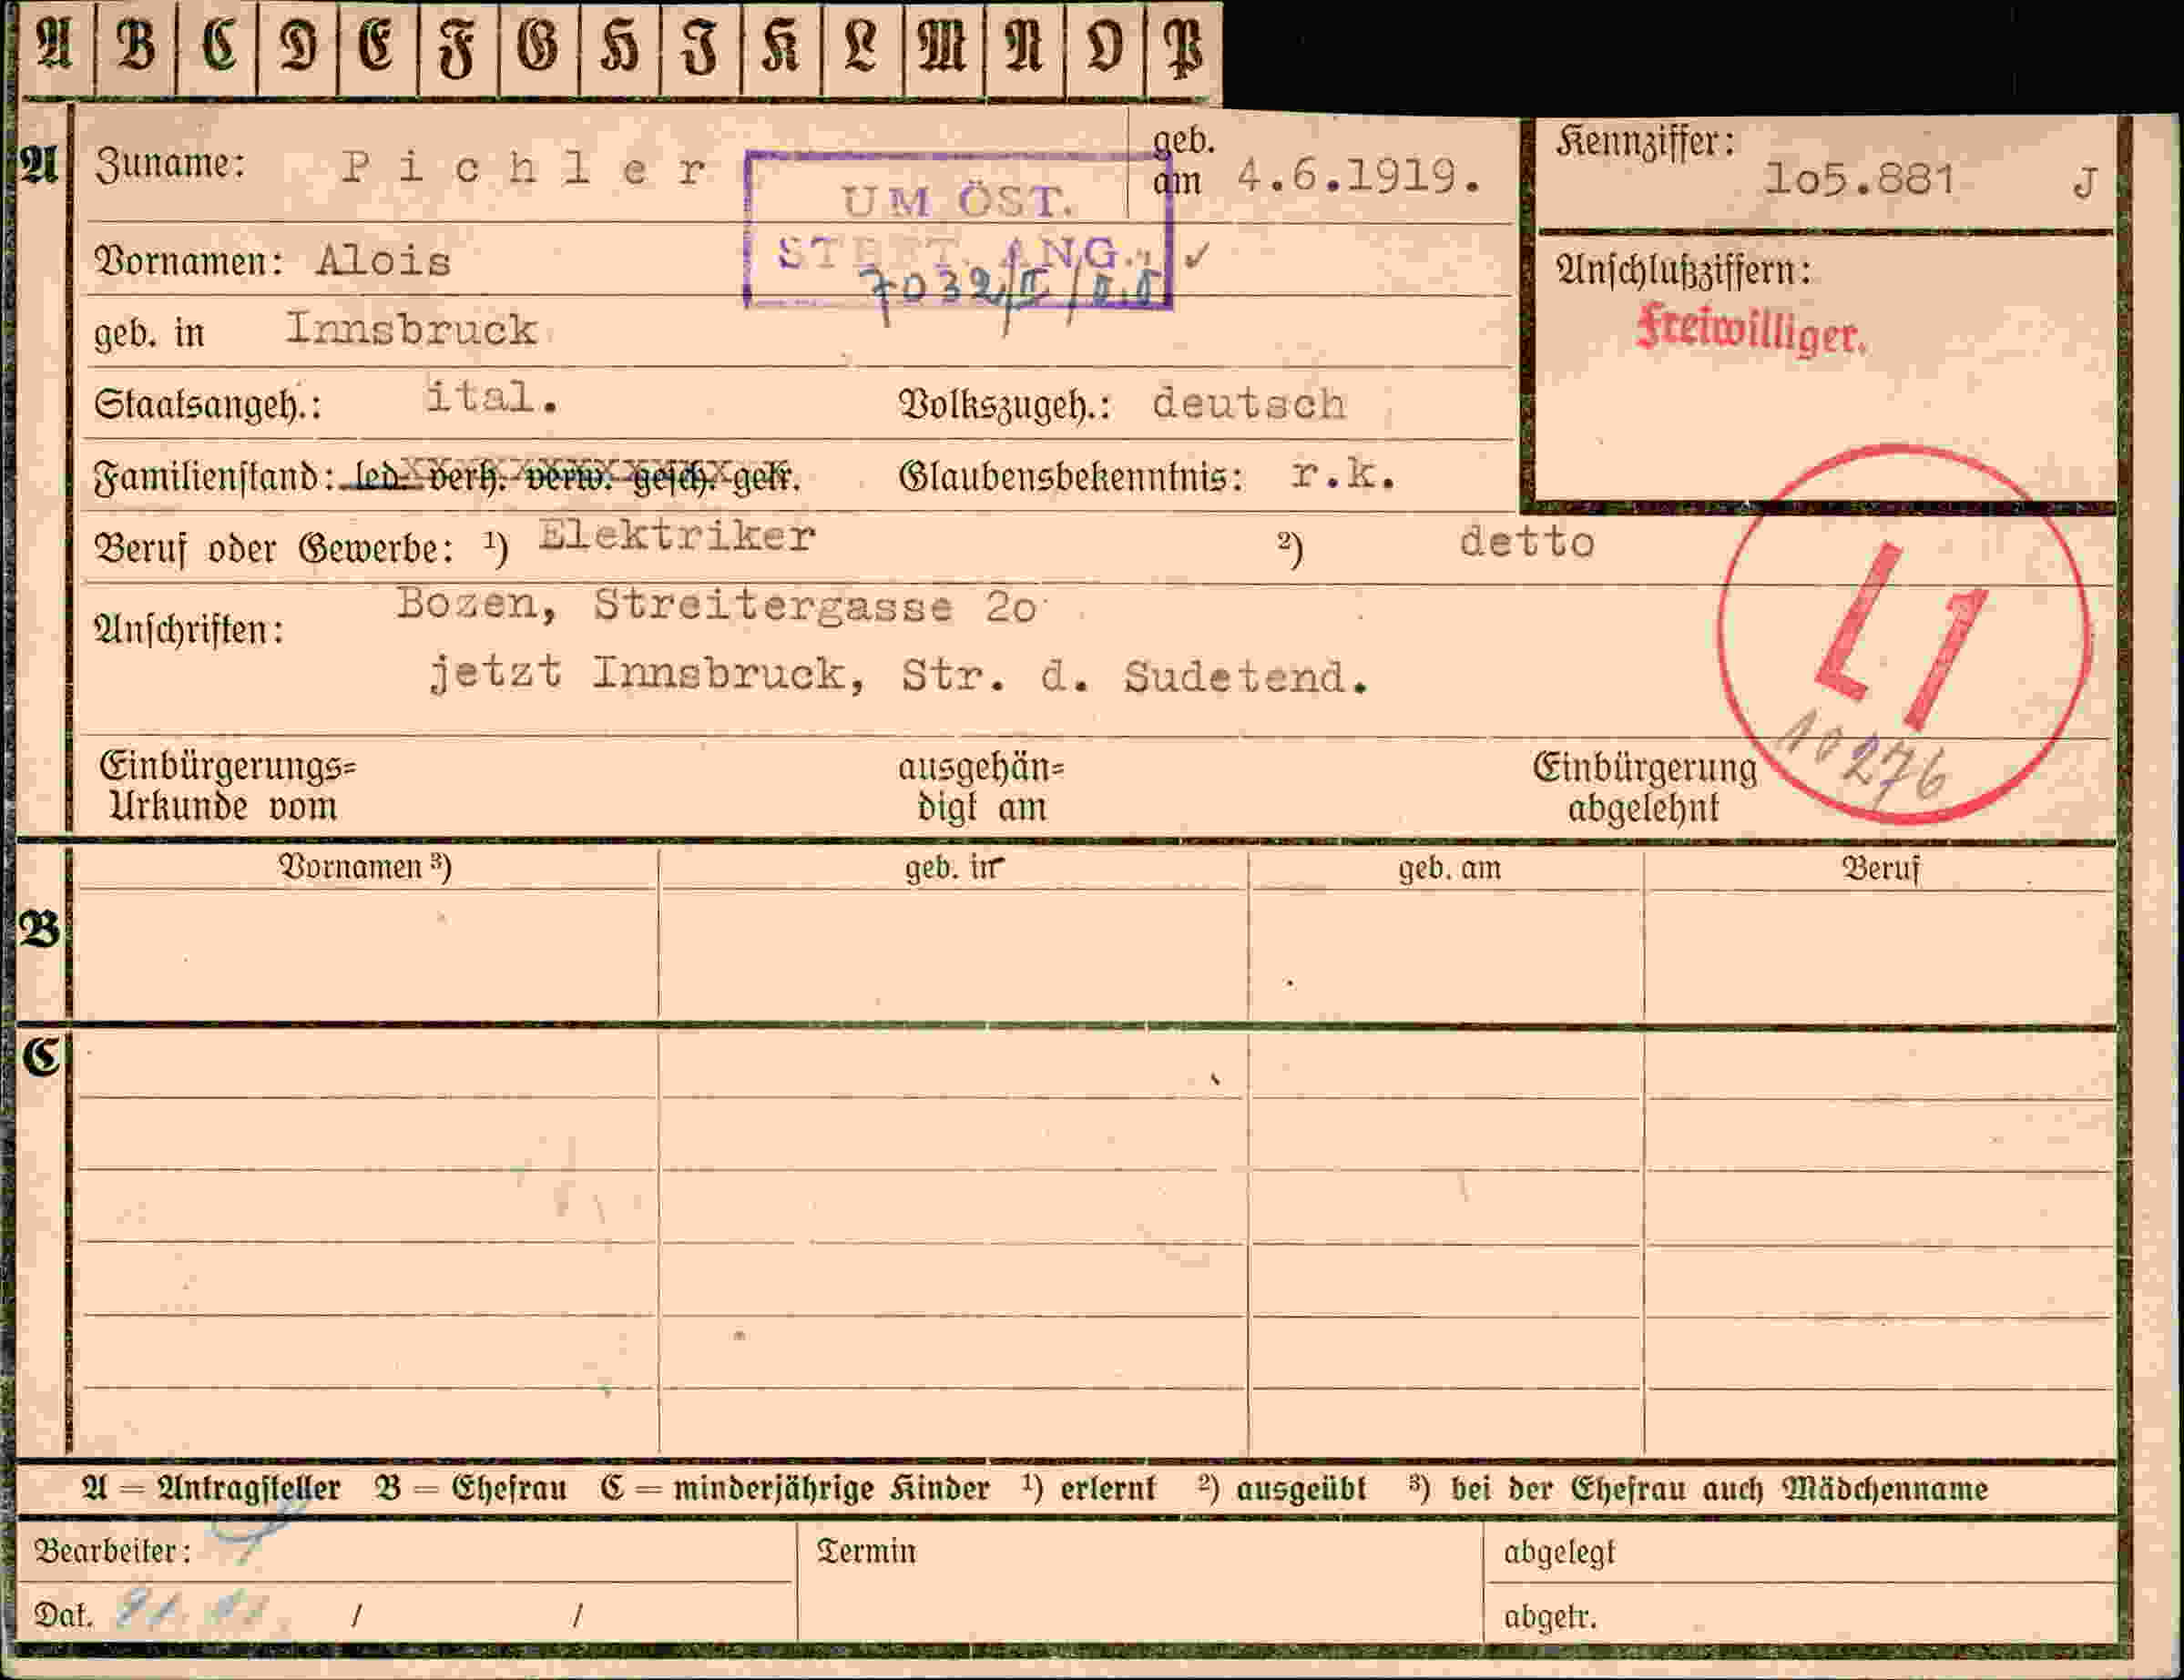 A B C D E F G H I K L M N O P
A Zuname: Pichler geb. am 4.6.1919. Kennziffer: 1o5.881 J
UM ÖST.
Vornamen: Alois ST. ANG. ✓ Anschlußziffern:
7032/II/
Freiwilliger.
geb. in Innsbruck
Staatsangeh.: ital. Volkszugeh.: deutsch
Familienstand: led. verh. verw. gesch. getr. Glaubensbekenntnis: r.k.
Beruf oder Gewerbe: ¹) Elektriker ²) detto
L1
Anschriften: Bozen, Streitergasse 2o
jetzt Innsbruck, Str. d. Sudetend.
10276
Einbürgerungs= ausgehän= Einbürgerung
Urkunde vom digt am abgelehnt
Vornamen ³) geb. in geb. am Beruf
B
C
A = Antragsteller B = Ehefrau C = minderjährige Kinder ¹) erlernt ²) ausgeübt ³) bei der Ehefrau auch Mädchenname
Bearbeiter: Termin abgelegt
Dat. / / abgetr.